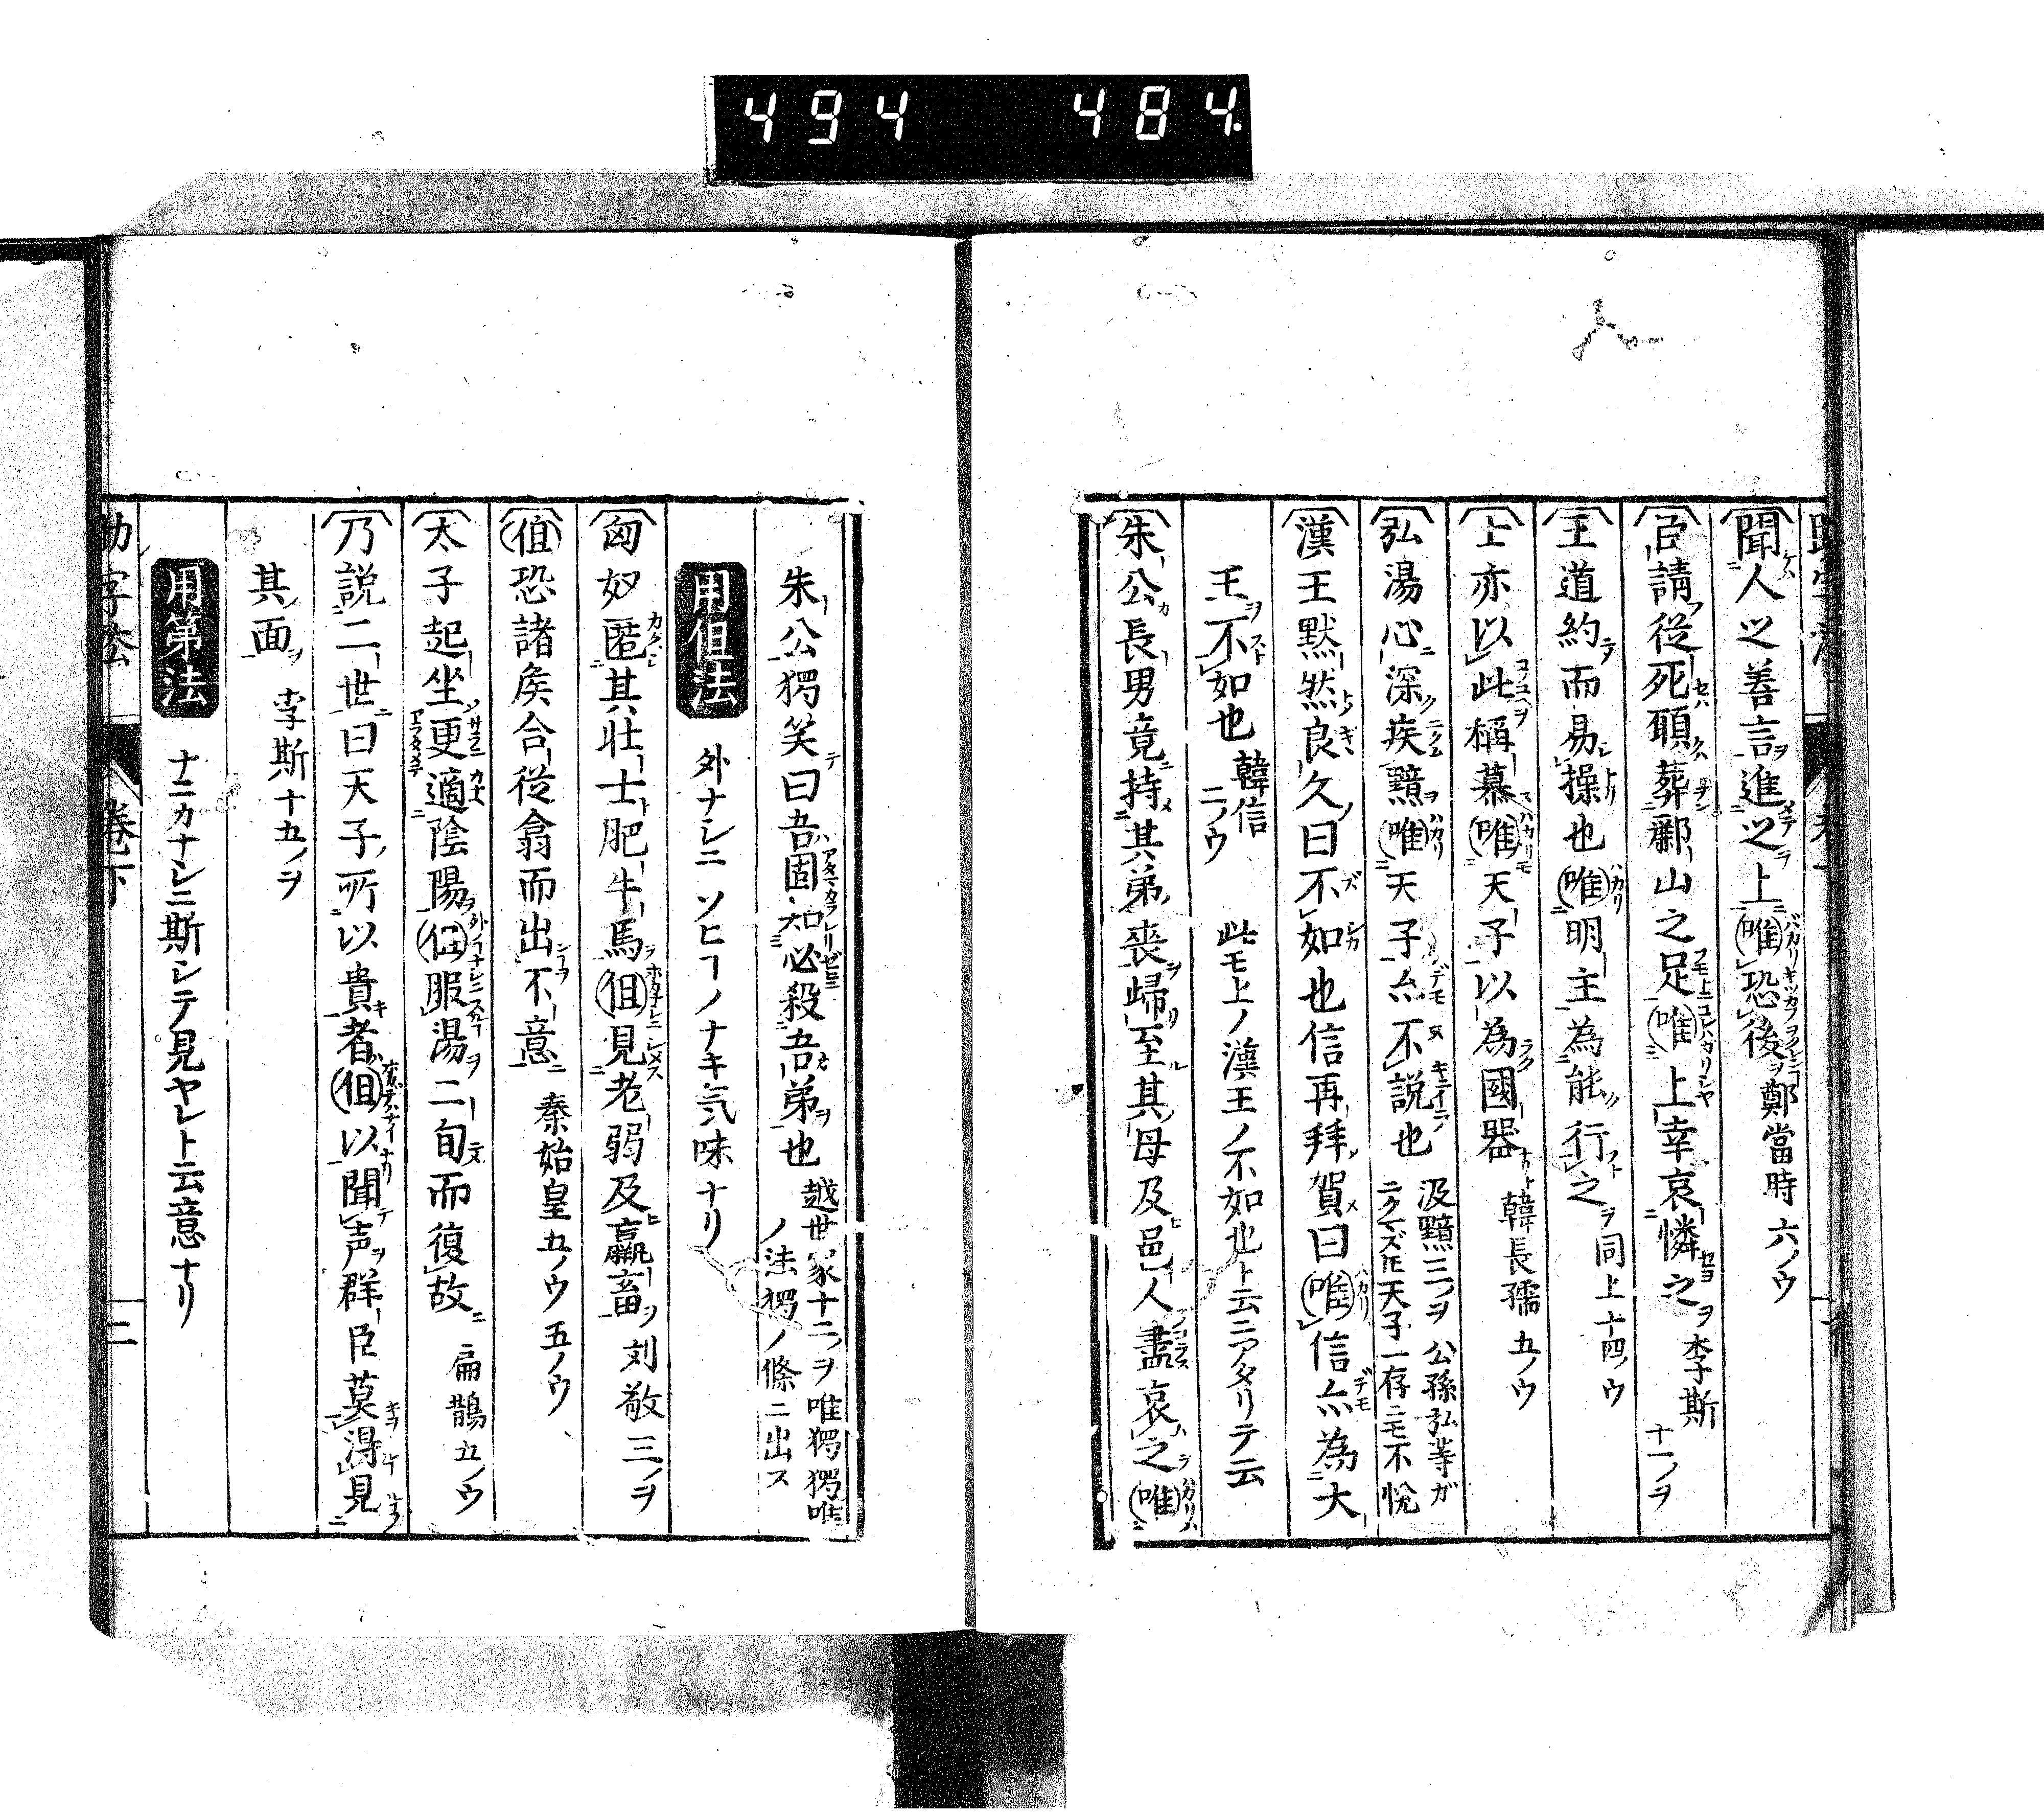 494 484.
聞人之善言進之上唯恐後 鄭當時六ノウ
臣請從死願葬酈山之足唯上幸哀憐之 李斯十一ノヲ
王道約而易操也唯明主為能行之 同上十四ノウ
上亦以此稱慕唯天子以為國器 韓長孺五ノウ
弘湯心深疾黯唯天子亦不說也 汲黯三ノヲ 公孫弘等ガニクマズ𪜈天子一存ニモ不悅
漢王黙然良久曰不如也信再拜賀曰唯信亦為大
王不如也 韓信二ノウ 此モ上ノ漢王ノ不如也ト云ニアタリテ云
朱公長男竟持其弟喪歸至其母及邑人盡哀之唯
朱公獨笑曰吾固知必殺吾弟也 越世家十二ノヲ 唯獨獨唯ノ法獨ノ條ニ出ス
用但法 外ナシニソヒヿノナキ気味ナリ
匈奴匿其壯士肥牛馬但見老弱及羸畜 刘敬三ノヲ
但恐諸矦合從翕而出不意 秦始皇五ノウ五ノウ
太子起坐更適陰陽但服湯二旬而復故 扁鵲五ノウ
乃説二世曰天子所以貴者但以聞声群臣莫得見
其面 李斯十五ノヲ
用第法 ナニカナシニ斯シテ見ヤレト云意ナリ
助字法 卷下 二